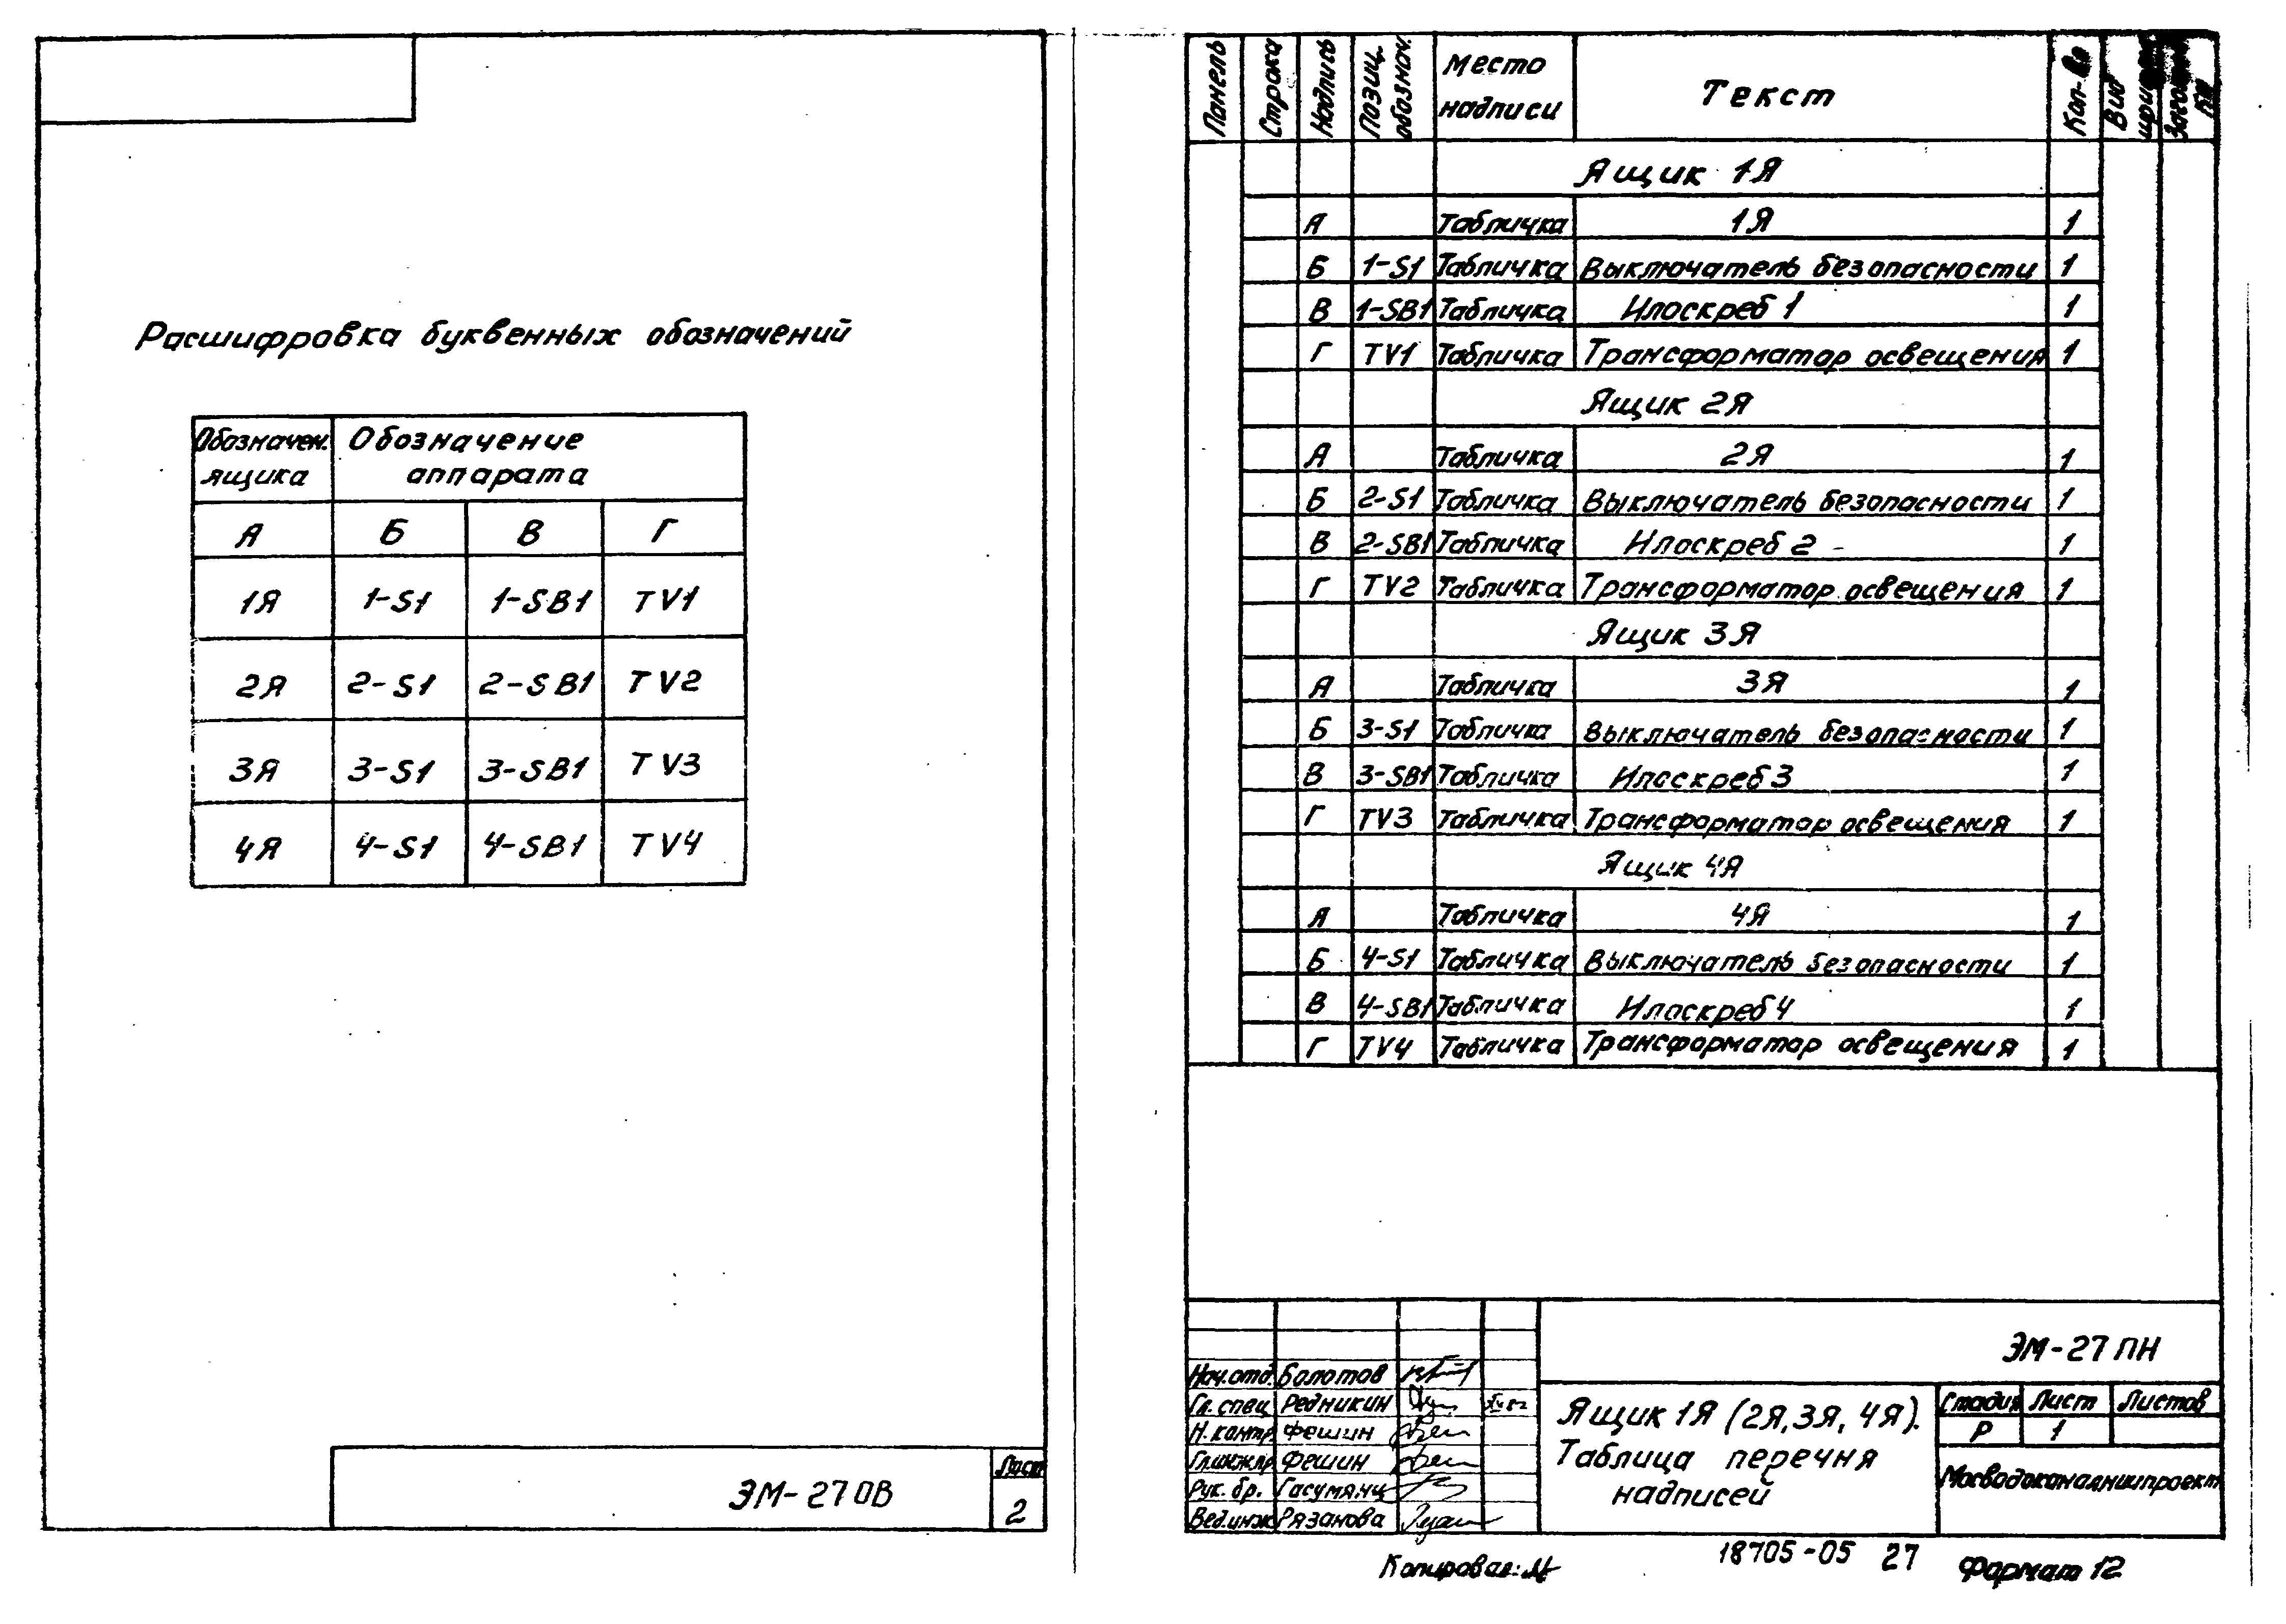 Расшифровка буквенных обозначений
Обозначен. ящика Обозначение аппарата
А Б В Г
1Я 1-S1 1-SB1 TV1
2Я 2-S1 2-SB1 TV2
3Я 3-S1 3-SB1 TV3
4Я 4-S1 4-SB1 TV4
ЭМ-27 ОВ
Лист
2
Панель Строка Надпись Позиц. обознач. Место надписи Текст Кол-во Вид
Ящик 1Я
А Табличка 1Я 1
Б 1-S1 Табличка Выключатель безопасности 1
В 1-SB1 Табличка Илоскреб 1 1
Г TV1 Табличка Трансформатор освещения 1
Ящик 2Я
А Табличка 2Я 1
Б 2-S1 Табличка Выключатель безопасности 1
В 2-SB1 Табличка Илоскреб 2 1
Г TV2 Табличка Трансформатор освещения 1
Ящик 3Я
А Табличка 3Я 1
Б 3-S1 Табличка Выключатель безопасности 1
В 3-SB1 Табличка Илоскреб 3 1
Г TV3 Табличка Трансформатор освещения 1
Ящик 4Я
А Табличка 4Я 1
Б 4-S1 Табличка Выключатель безопасности 1
В 4-SB1 Табличка Илоскреб 4 1
Г TV4 Табличка Трансформатор освещения 1
ЭМ-27 ПН
Нач.отд. Болотов
Гл. спец Редникин
Н. контр Фешин
Гл.инж.пр Фешин
Рук. бр. Гасумянц
Вед.инж Рязанова
Ящик 1Я (2Я, 3Я, 4Я).
Таблица перечня
надписей
Стадия Лист Листов
Р 1
Мосводоканалниипроект
Копировал:
18705-05 27
Формат 12